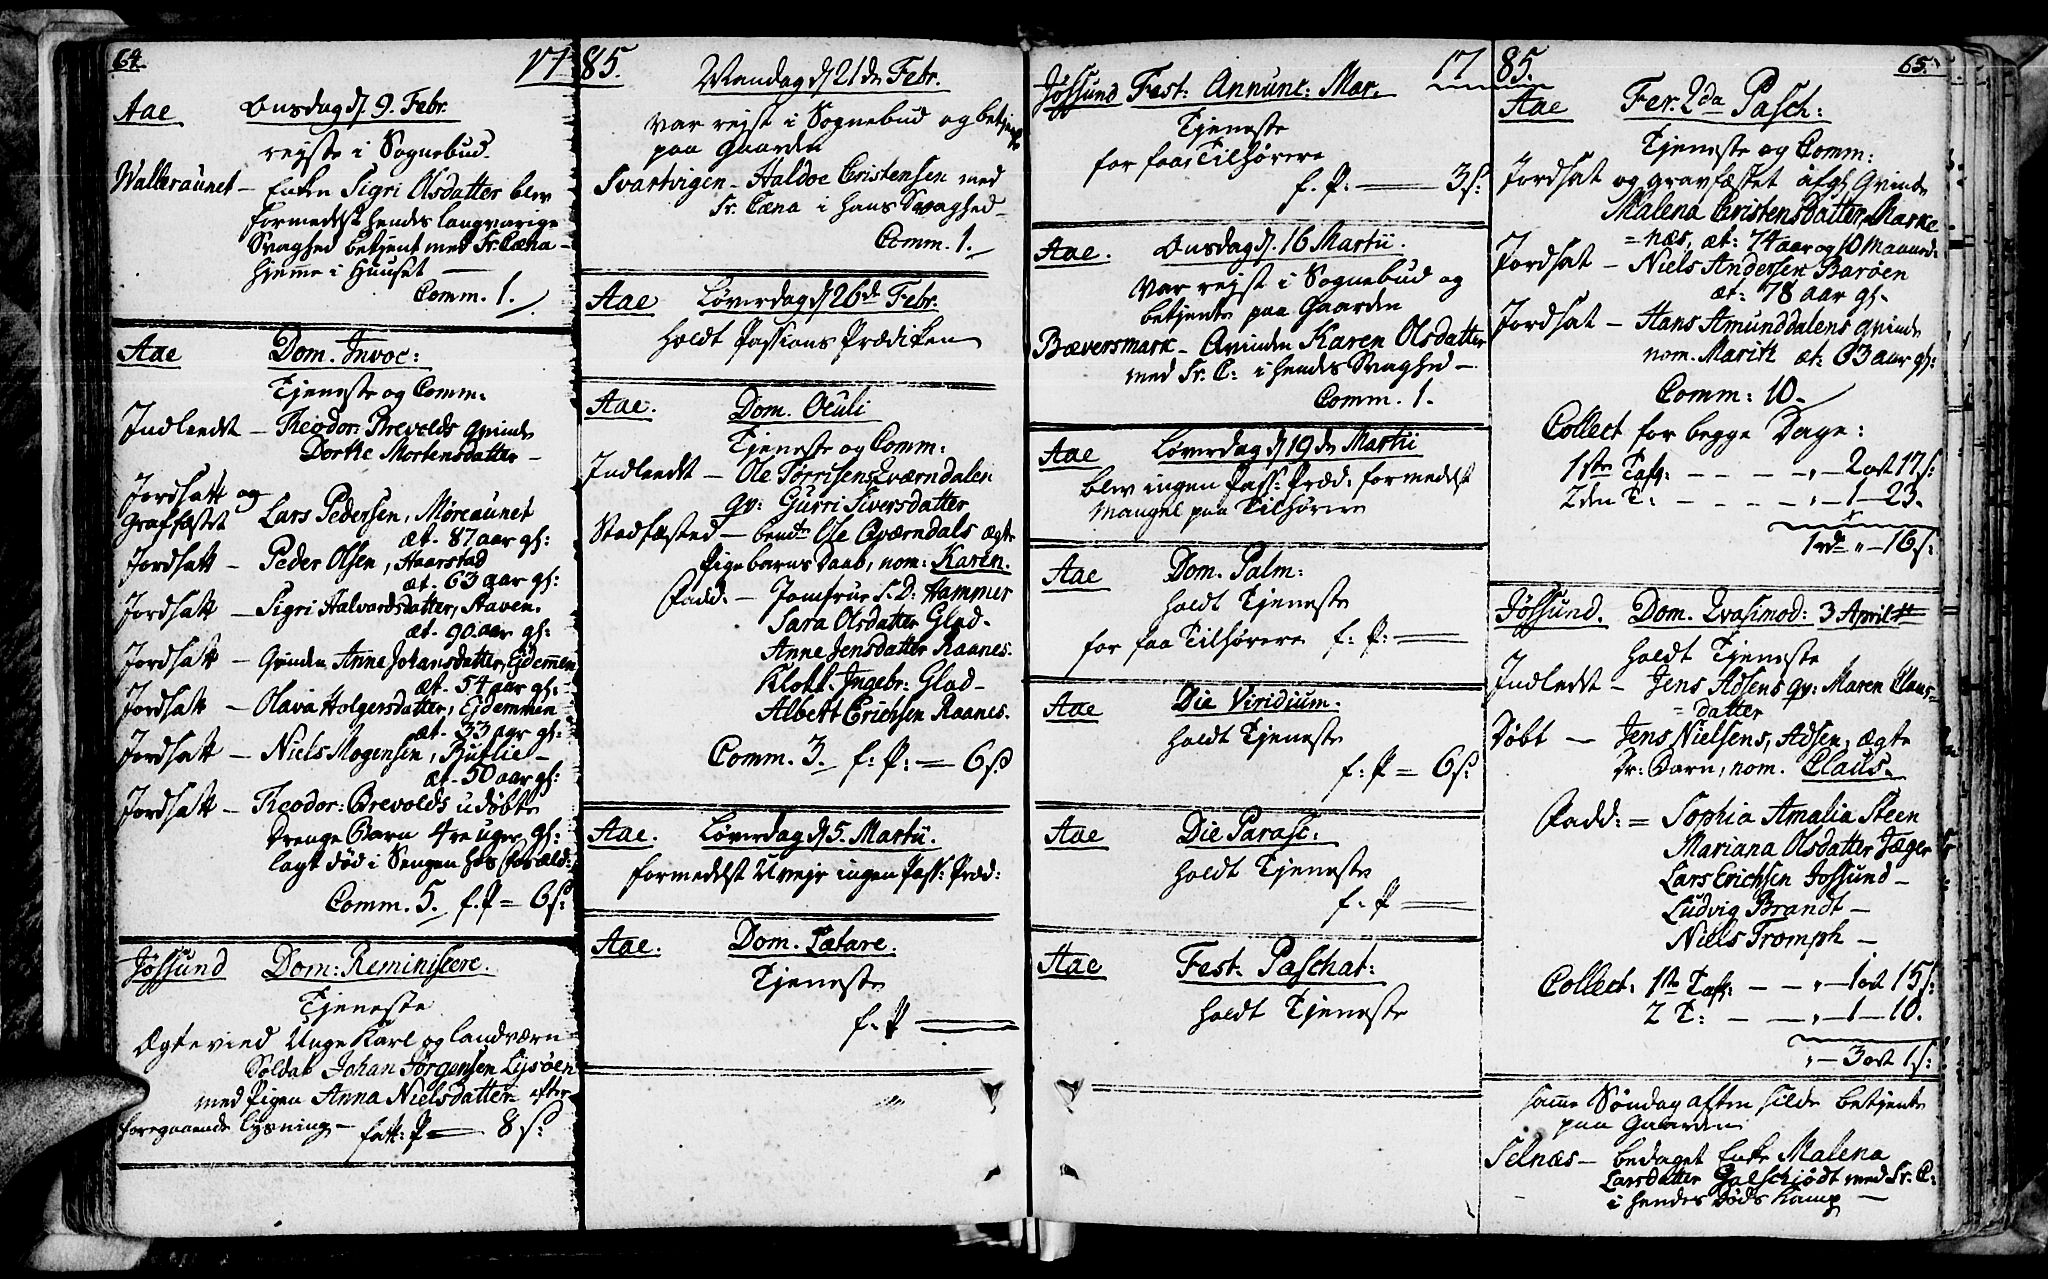 64.
1785.
Aae Onsdag d. 9. Febr.
rejste i Sognebud
Walleraunet – Enken Sigri Olsdatter blev
formedelst hendes langvarige
Svaghed betjent med Sr. Cæna –
hjemme i Huuset –
Comm. 1.
Aae Dom. Invoc:
Tjeneste og Comm:
Indleedt – Theodor: Brevolds qvinde
Dorthe Mortensdatter –
Jordsatt og
Graffæstet Lars Pedersen, Møreaunet
æt. 87 aar gl:
Jordsatt – Peder Olsen, Haarstad
æt. 63 aar gl:
Jordsatt – Sigri Halvardsdatter, Staven.
æt. 90 aar gl:
Jordsatt – Qvinden Anne Johansdatter, Ejdemmen
æt. 54 aar gl:
Jordsatt – Olava Holgersdatter, Ejdemmen
æt. 33 aar gl:
Jordsatt – Niels Mogensen, Buflie –
æt. 50 aar gl:
Jordsatt – Theodor: Brevolds udøbte
Drenge Barn 4re uger gl:
lagt død i Sengen hos foræld:
Comm. 5. f. P = 6 s:
Jøssund Dom: Reminiscere.
Tjeneste
Ægtevied Unge Karl og landværn
Soldat Johan Jørgensen Lysøen
med Pigen Anna Nielsdatter efter
foregaaende lysning – fatt: P = 8 s:
Mandag d. 21de Febr.
var rejst i Sognebud og betjente
paa Gaarden
Svartvigen – Haldoe Cristensen med
Sr. Cæna i hans Svaghed –
Comm. 1.
Aae Løverdag d. 26de Febr.
holdt Passions Prædiken
Aae. Dom. Oculi
Tjeneste og Comm:
Indleedt – Ole Tørrisens Qværndalen
qv: Gurri Siversdatter
Stadfæsted – bemte Ole Qværndals ægte
Pigebarns Daab, nom: Karen.
Fadd. – Jomfrue S. D: Hammer
Sara Olsdatter Glad –
Anne Jensdatter Raanes.
Klokk. Ingebr: Glad –
Albert Erichsen Raanes.
Comm. 3. f: P: = 6 s:
Aae. Løverdag d. 5. Martii.
formedelst Uvejr ingen Pass: Præd:
Aae. Dom. Lætare.
Tjeneste
f: P
1785.
65.
Jøssund Fest: Annunc: Mar.
Tjeneste
for faa Tilhørere
f. P: – 3 s:
Aae. Onsdag d. 16 Martii.
var rejst i Sognebud og
betjente paa Gaarden
Bæversmark – Qvinden Karen Olsdatter
med Sr. C: i hendes Svaghed –
Comm. 1.
Aae Løverdag d. 19de Martii
blev ingen Pass: Præd: formedelst
Mangel paa Tilhørere
Aae Dom. Palm:
holdt Tjeneste
for faa Tilhørere f: P: –
Aae Die Viridium.
holdt Tjeneste
f: P = 6 s:
Aae Die Parasc:
holdt Tjeneste
f: P
Aae Fest: Paschat:
holdt Tjeneste
Aae Fer. 2da Pasch:
Tjeneste og Comm:
Jordsat og gravfæstet afg: Qvinde
Malena Cristensdatter, Marke
= næs, æt: 74 aar og 10 Maaned:
Jordsat – Niels Andersen Barøen
æt: 78 aar gl.
Jordsat – Hans Amunddalens qvinde
nom. Marit æt: 63 aar gl:
Comm: 10.
Collect for begge Dage:
1ste Tafl: – – – „ – 2 ort 17 s:
2den T: – – – „ – 1 – 23.
1 rd „ – 16 s:
Jøssund. Dom. Qvasimod: 3 April
holdt Tjeneste
Indledt – Jens Adsens qv: Maren Claus-
= datter
Døbt – Jens Nielsens, Adsen, ægte
Dr: Barn, nom. Claus.
Fadd: = Sophia Amalia Steen
Mariana Olsdatter Jæger
Lars Erichsen Jossund –
Ludvig Brandt –
Niels Tromph –
Collect: 1ste Tafl: – – „ – 1 ort 15 s:
2 T: – – „ – 1 – 10.
„ – 3 ort 1 s:
Samme Søndag aften silde betjente
paa Gaarden
Selnæs – bedaget Enke Malena
Larsdatter Galschiødt med Sr. C:
i hendes Døds Kamp –